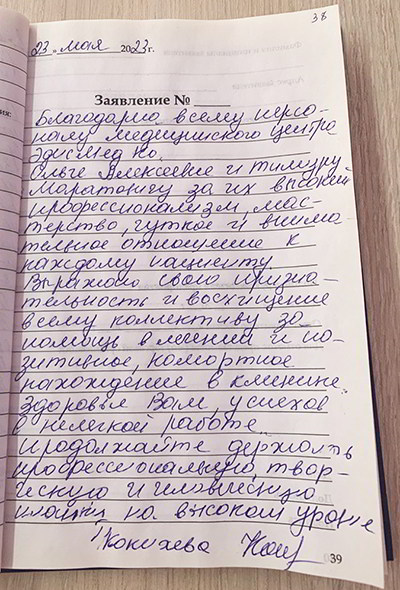 38
23 " мая 2023г.
Заявление №
Благодарю всему персо-
налу медицинского центра
Эдис Мед Ко.
Ольге Алексеевне и Тимуру
Маратовичу за их высокий
профессионализм, мас-
терство, чуткое и внима-
тельное отношение к
каждому пациенту.
Выражаю свою призна-
тельность и восхищение
всему коллективу за
помощь в лечении и по-
зитивное, комортное
нахождение в клинике.
Здоровья Вам, успехов
в нелегкой работе.
Продолжайте держать
профессиональную, твор-
ческую и человеческую
планку на высоком уровне
39